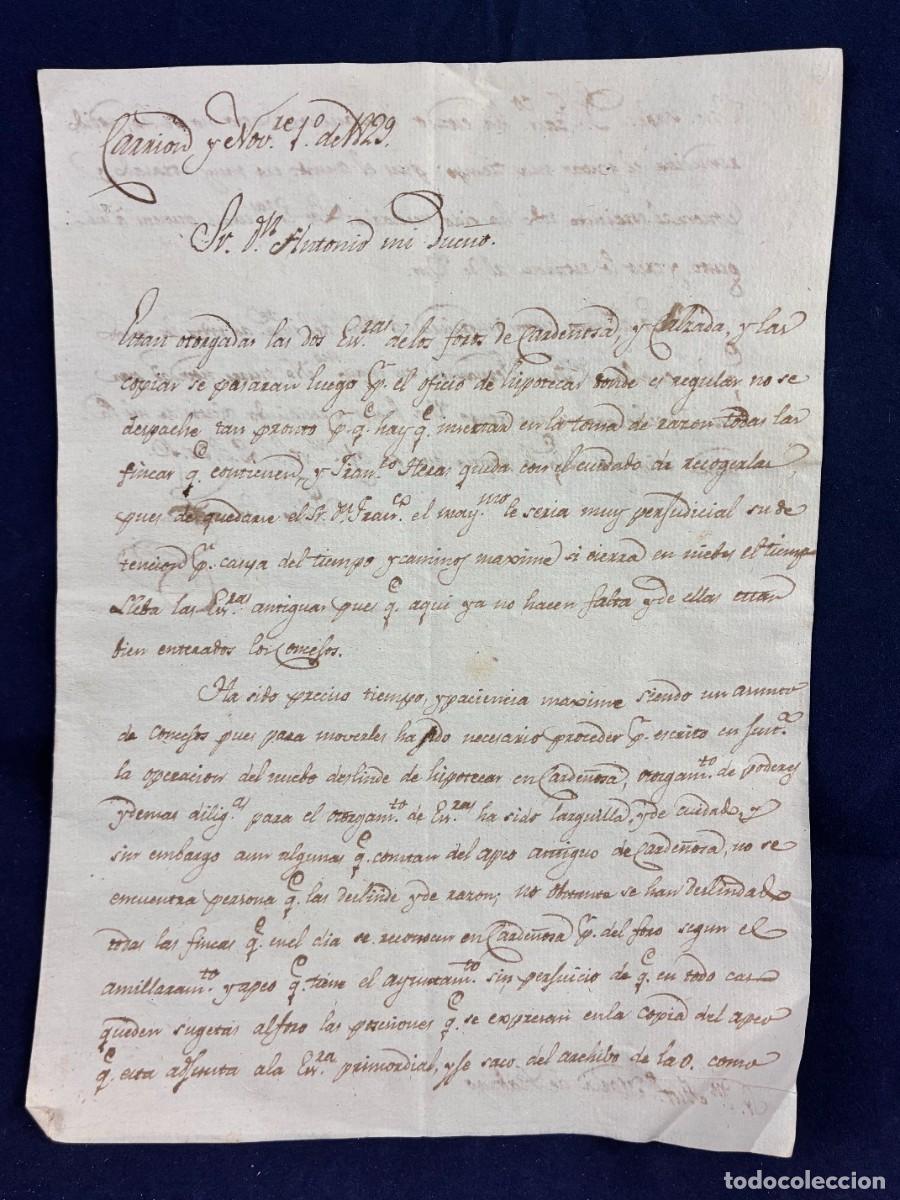 Carrion y Nov.re 1.º de 1829.
Sr. Dn. Antonio mi Dueño.
Estan otorgadas las dos Es.ras de los foros de Cardeñosa, y Calzada, y las
copias se pasaran luego p.r el oficio de hipotecas donde es regular no se
despache tan pronto p.r q.e hay q.e insertar en la toma de razon todas las
fincas q.e contienen, y Fran.co Heras queda con el cuidado de recogerlas,
pues de quedarse el Sr. Dn. Fran.co el may.mo le seria muy perjudicial su de
tencion p.r causa del tiempo y caminos maxime si cierra en niebes el tiempo
Lleba las Es.ras antiguas pues q.e aqui ya no hacen falta y de ellas estan
bien enterados los Concejos.
Ha sido preciso tiempo, y paciencia maxime siendo un asunto
de Concejos pues para moverles ha sido necesario proceder p.r escrito en
la operacion del nuebo deslinde de hipotecas en Cardeñosa, otorgam.to de poderes
y demas dilig.s para el otorgam.to de Es.ras ha sido larguilla, y de cuidado, y
sin embargo aun algunas q.e constan del apeo antiguo de Cardeñosa, no se
encuentra persona q.e las deslinde y de razon; no obstante se han deslindado
todas las fincas q.e en el dia se reconocen en Cardeñosa p.r del foro segun el
amillaram.to y apeo q.e tiene el ayuntam.to sin perjuicio de q.e en todo caso
queden sugetas al foro las posesiones q.e se expresan en la copia del apeo
q.e esta adjunta a la Es.ra primordial, y se saco del archibo de la O. como
todocoleccion